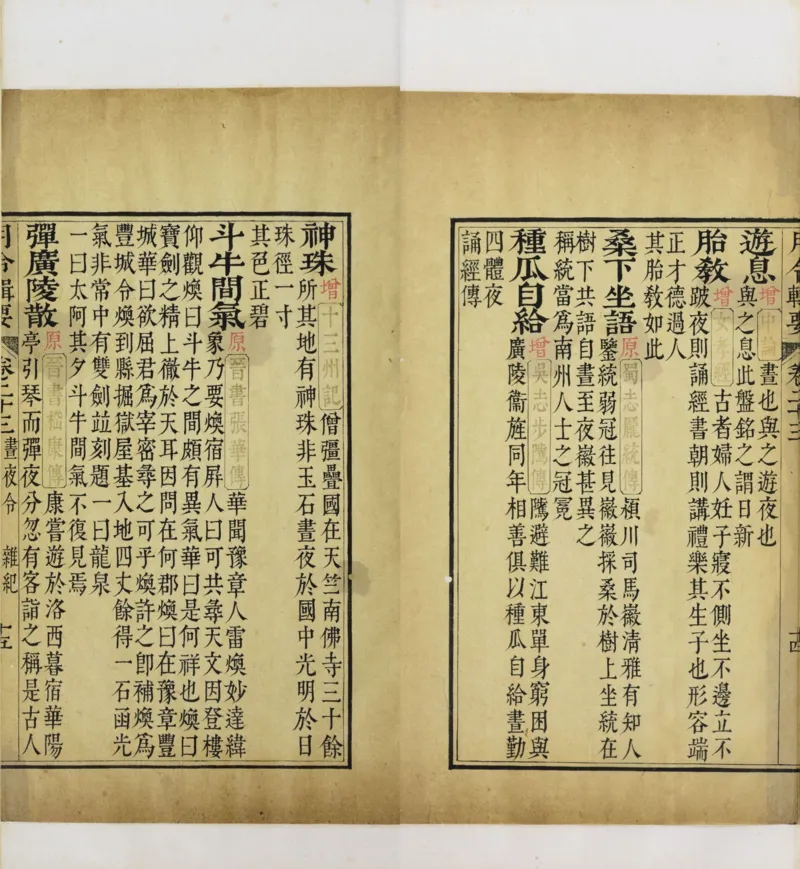 月令輯要 卷二十三 十四
遊息 增 中論 晝也與之遊夜也
與之息此盤銘之謂日新
胎敎 增 女孝經 古者婦人妊子寢不側坐不邊立不
跛夜則誦經書朝則講禮樂其生子也形容端
正才德過人
其胎敎如此
桑下坐語 原 蜀志龐統傳 潁川司馬徽清雅有知人
鑒統弱冠往見徽徽採桑於樹上坐統在
樹下共語自晝至夜徽甚異之
稱統當爲南州人士之冠冕
種瓜自給 增 吳志步騭傳 騭避難江東單身窮困與
廣陵衞旌同年相善俱以種瓜自給晝勤
四體夜
誦經傳
神珠 增 十三州記 僧彊疊國在天竺南佛寺三十餘
所其地有神珠非玉石晝夜於國中光明於日
珠徑一寸
其色正碧
斗牛間氣 原 晉書張華傳 華聞豫章人雷煥妙達緯
象乃要煥宿屏人曰可共尋天文因登樓
仰觀煥曰斗牛之間頗有異氣華曰是何祥也煥曰
寶劍之精上徹於天耳因問在何郡煥曰在豫章豐
城華曰欲屈君爲宰密尋之可乎煥許之卽補煥爲
豐城令煥到縣掘獄屋基入地四丈餘得一石函光
氣非常中有雙劍並刻題一曰龍泉
一曰太阿其夕斗牛間氣不復見焉
彈廣陵散 原 晉書嵇康傳 康嘗遊於洛西暮宿華陽
亭引琴而彈夜分忽有客詣之稱是古人
月令輯要 卷二十三 晝夜令 雜紀 十五